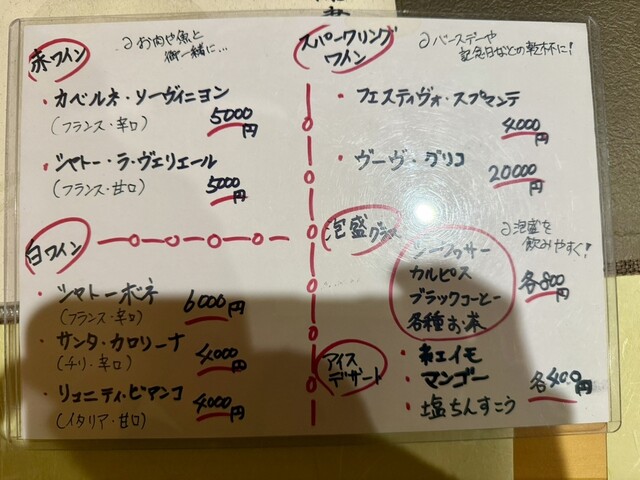 赤ワイン
お肉や魚と
御一緒に…
・カベルネ・ソーヴィニヨン
(フランス・辛口)
5000円
・シャトー・ラ・ヴェリエール
(フランス・甘口)
5000円
白ワイン
・シャトーボネ
(フランス・辛口)
6000円
・サンタ・カロリーナ
(チリ・辛口)
4000円
・リュニティ・ビアンコ
(イタリア・甘口)
4000円
スパークリング
ワイン
バースデーや
記念日などの乾杯に!
・フェスティヴォ・スプマンテ
4000円
・ヴーヴ・グリコ
20000円
泡盛グラス
泡盛を
飲みやすく!
シークヮサー
カルピス
ブラックコーヒー
各種お茶
各800円
アイス
デザート
・紅イモ
・マンゴー
・塩ちんすこう
各400円